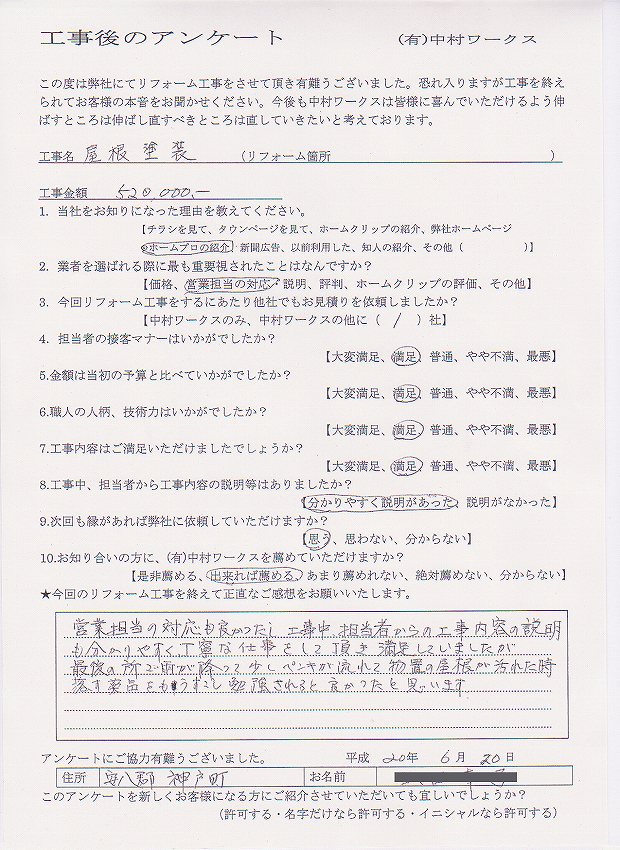 工事後のアンケート (有)中村ワークス
この度は弊社にてリフォーム工事をさせて頂き有難うございました。恐れ入りますが工事を終え
られてお客様の本音をお聞かせください。今後も中村ワークスは皆様に喜んでいただけるよう伸
ばすところは伸ばし直すべきところは直していきたいと考えております。
工事名 屋根塗装 (リフォーム箇所 )
工事金額 520,000.-
1. 当社をお知りになった理由を教えてください。
【チラシを見て、タウンページを見て、ホームクリップの紹介、弊社ホームページ
ホームプロの紹介 新聞広告、以前利用した、知人の紹介、その他 ( )】
2. 業者を選ばれる際に最も重要視されたことはなんですか?
【価格、営業担当の対応、説明、評判、ホームクリップの評価、その他】
3. 今回リフォーム工事をするにあたり他社でもお見積りを依頼しましたか?
【中村ワークスのみ、中村ワークスの他に ( / ) 社】
4. 担当者の接客マナーはいかがでしたか?
【大変満足、満足、普通、やや不満、最悪】
5.金額は当初の予算と比べていかがでしたか?
【大変満足、満足、普通、やや不満、最悪】
6.職人の人柄、技術力はいかがでしたか?
【大変満足、満足、普通、やや不満、最悪】
7.工事内容はご満足いただけましたでしょうか?
【大変満足、満足、普通、やや不満、最悪】
8.工事中、担当者から工事内容の説明等はありましたか?
【分かりやすく説明があった、説明がなかった】
9.次回も縁があれば弊社に依頼していただけますか?
【思う、思わない、分からない】
10.お知り合いの方に、(有)中村ワークスを薦めていただけますか?
【是非薦める、出来れば薦める、あまり薦めれない、絶対薦めない、分からない】
★今回のリフォーム工事を終えて正直なご感想をお願いいたします。
営業担当の対応も良かったし、工事中、担当者からの工事内容の説明
も分かりやすく丁寧な仕事をして頂き満足していましたが
最後の所で雨が降って少しペンキが流れて物置の屋根が汚れた時
落す薬品をもうすこし勉強されると良かったと思います
アンケートにご協力有難うございました。 平成 20年 6月 20日
住所 安八郡 神戸町 お名前
このアンケートを新しくお客様になる方にご紹介させていただいても宜しいでしょうか?
(許可する・名字だけなら許可する・イニシャルなら許可する)